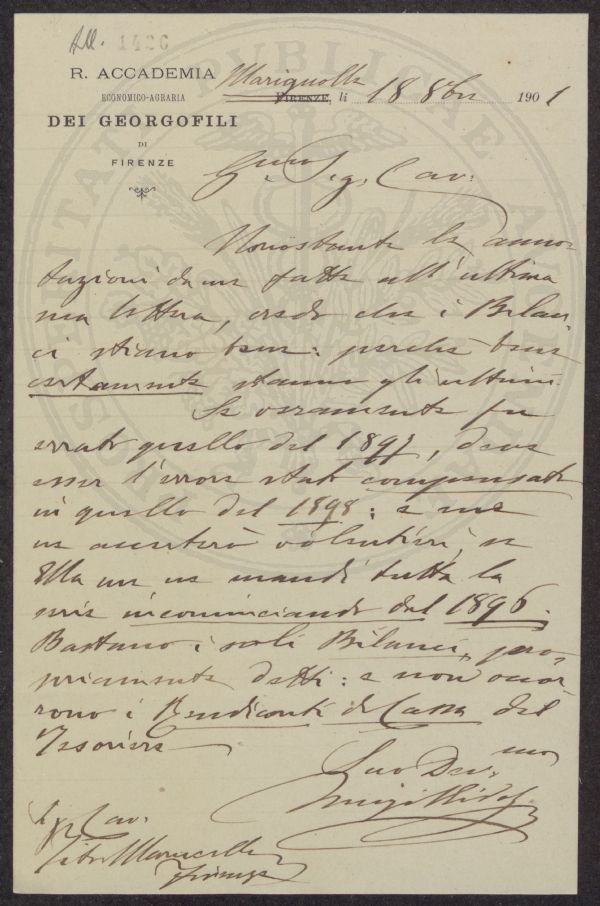 All. 1426
R. ACCADEMIA
ECONOMICO-AGRARIA
DEI GEORGOFILI
DI
FIRENZE
Marignolle
FIRENZE, lì 18 8bre 1901
Sig. Cav.
Nonostante le anno-
tazioni da me fatte all'ultima
mia lettera, credo che i Bilan-
ci stiano bene: perchè bene
certamente stanno gli ultimi.
Se veramente fu
errato quello del 1897, deve
esser l'errore stato compensato
in quello del 1898: e me
ne accerterò volentieri, se
Ella me ne mandi tutta la
serie incominciando dal 1896.
Bastano i soli Bilanci, pro-
priamente detti: e non occor-
rono i Rendiconti di Cassa del
Tesoriere
Suo Dev.mo
Luigi
Sig. Cav.
Firenze